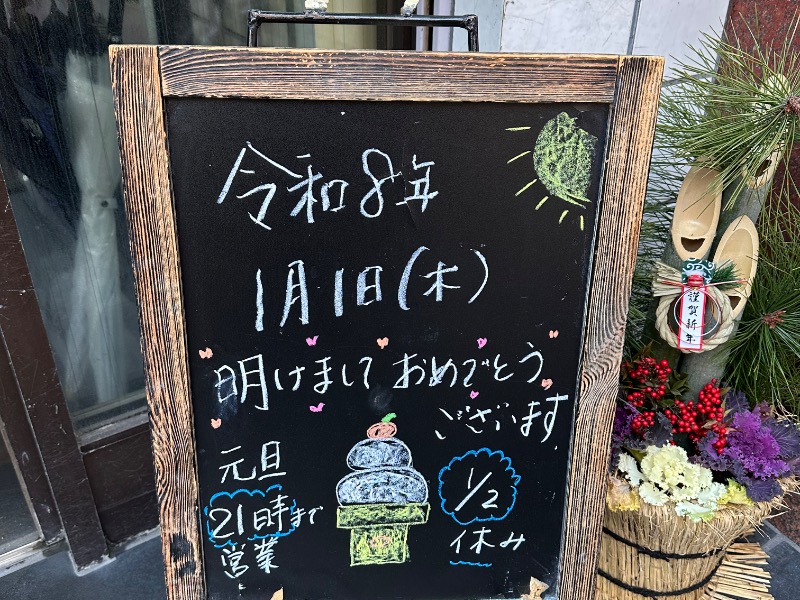 令和8年
1月1日(木)
明けまして おめでとう
ございます
元旦
21時まで
営業
1/2
休み
謹賀新年